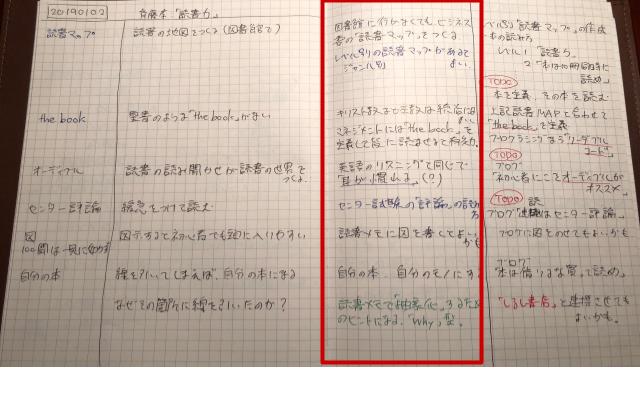 20190102
斉藤本「読書力」
読書マップ
読書の地図をつくる(図書館で)
図書館に行かなくてもビジネス
書の「読書マップ」をつくる
レベル別の読書マップがあっても
ジャンル別
よい。
「読書マップ」の作成
本の読み方
レベル1「読書力」
2「本は10冊同時に
読め」
TODO
本を定義、その本を読む
the book
聖書のような「the book」がない
キリスト教など宗教は統治には
マネジメントには「the book」を
定義して皆に読ませると有効
上記読書MAPと合わせて
「the book」を定義
プログラミングなら「リーダブル
コード」
TODO
オーディブル
読書の読み聞かせが読書の世界を
つくる。
英語のリスニングと同じで
「耳が慣れる」(?)
ブログ
「初心者にこそオーディブルが
オススメ」
TODO
センター評論
緩急をつけて読む
センター試験の「評論」の読み方
ブログ
はセンター評論」
図
100聞は一見に如かず
図示すると初心者でも頭に入りやすい
読書メモに図を書くとよい
かも
ブログに図をのせてもよいかも
自分の本
線を引いてしまえば、自分の本になる
自分の本、自分のモノにする
ブログ
「本は借りるな買って読め」
なぜその箇所に線を引いたのか?
読書メモで「抽象化」するため
のヒントになる、「Why」型。
「しるし書店」と連携させても
よいかも。